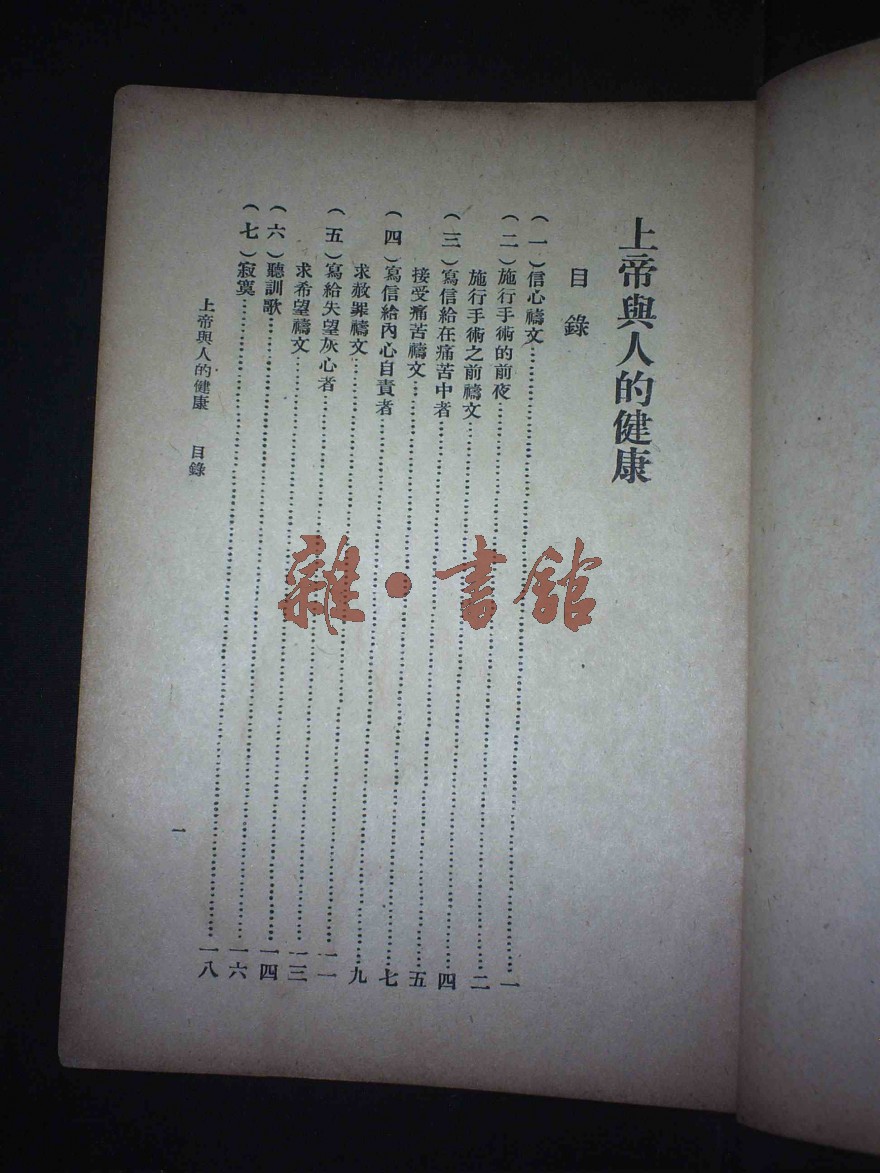 上帝與人的健康
目錄
(一)信心禱文……一
(二)施行手術的前夜……二
施行手術之前禱文……四
(三)寫信給在痛苦中者……五
接受痛苦禱文……七
(四)寫信給內心自責者……九
求赦罪禱文……一一
(五)寫給失望灰心者……一三
求希望禱文……一四
(六)聽訓歌……一六
(七)寂寞……一八
上帝與人的健康 目錄
一
雜·書館